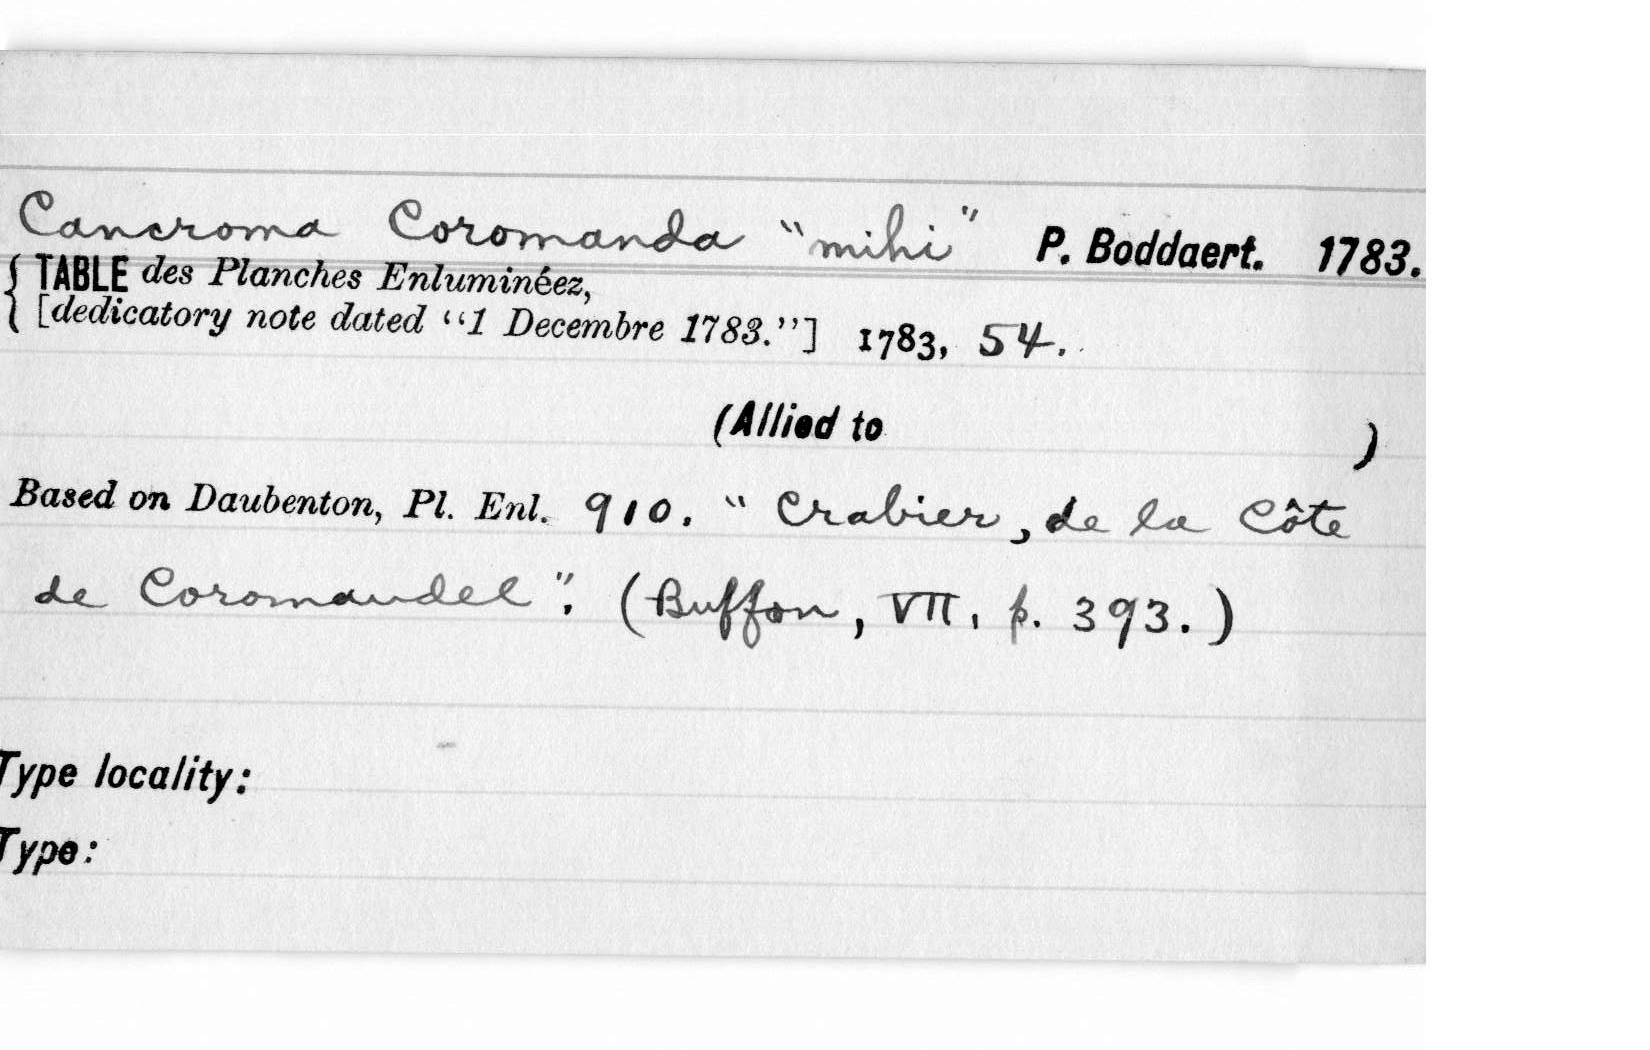 Cancroma Coromanda "mihi" P. Boddaert. 1783.
{ TABLE des Planches Enluminéez,
[dedicatory note dated "1 Decembre 1783."] 1783, 54.
(Allied to )
Based on Daubenton, Pl. Enl. 910. "Crabier, de la Côte
de Coromandel". (Buffon, VII, p. 393.)
Type locality:
Type: